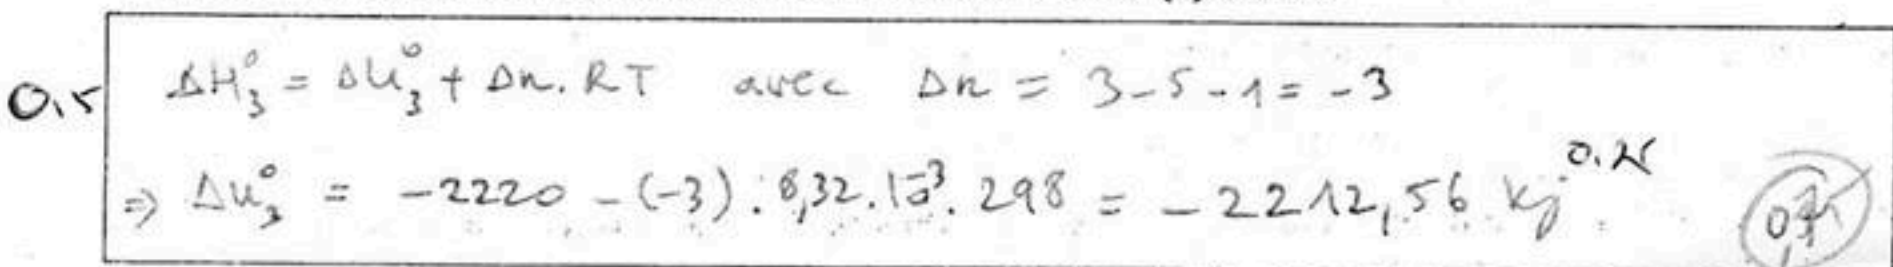 0.5 ΔH₃° = ΔU₃° + Δn. RT avec Δn = 3-5-1 = -3
⇒ ΔU₃° = -2220 - (-3) . 8,32.10⁻³. 298 = -2212,56 kj 0.25